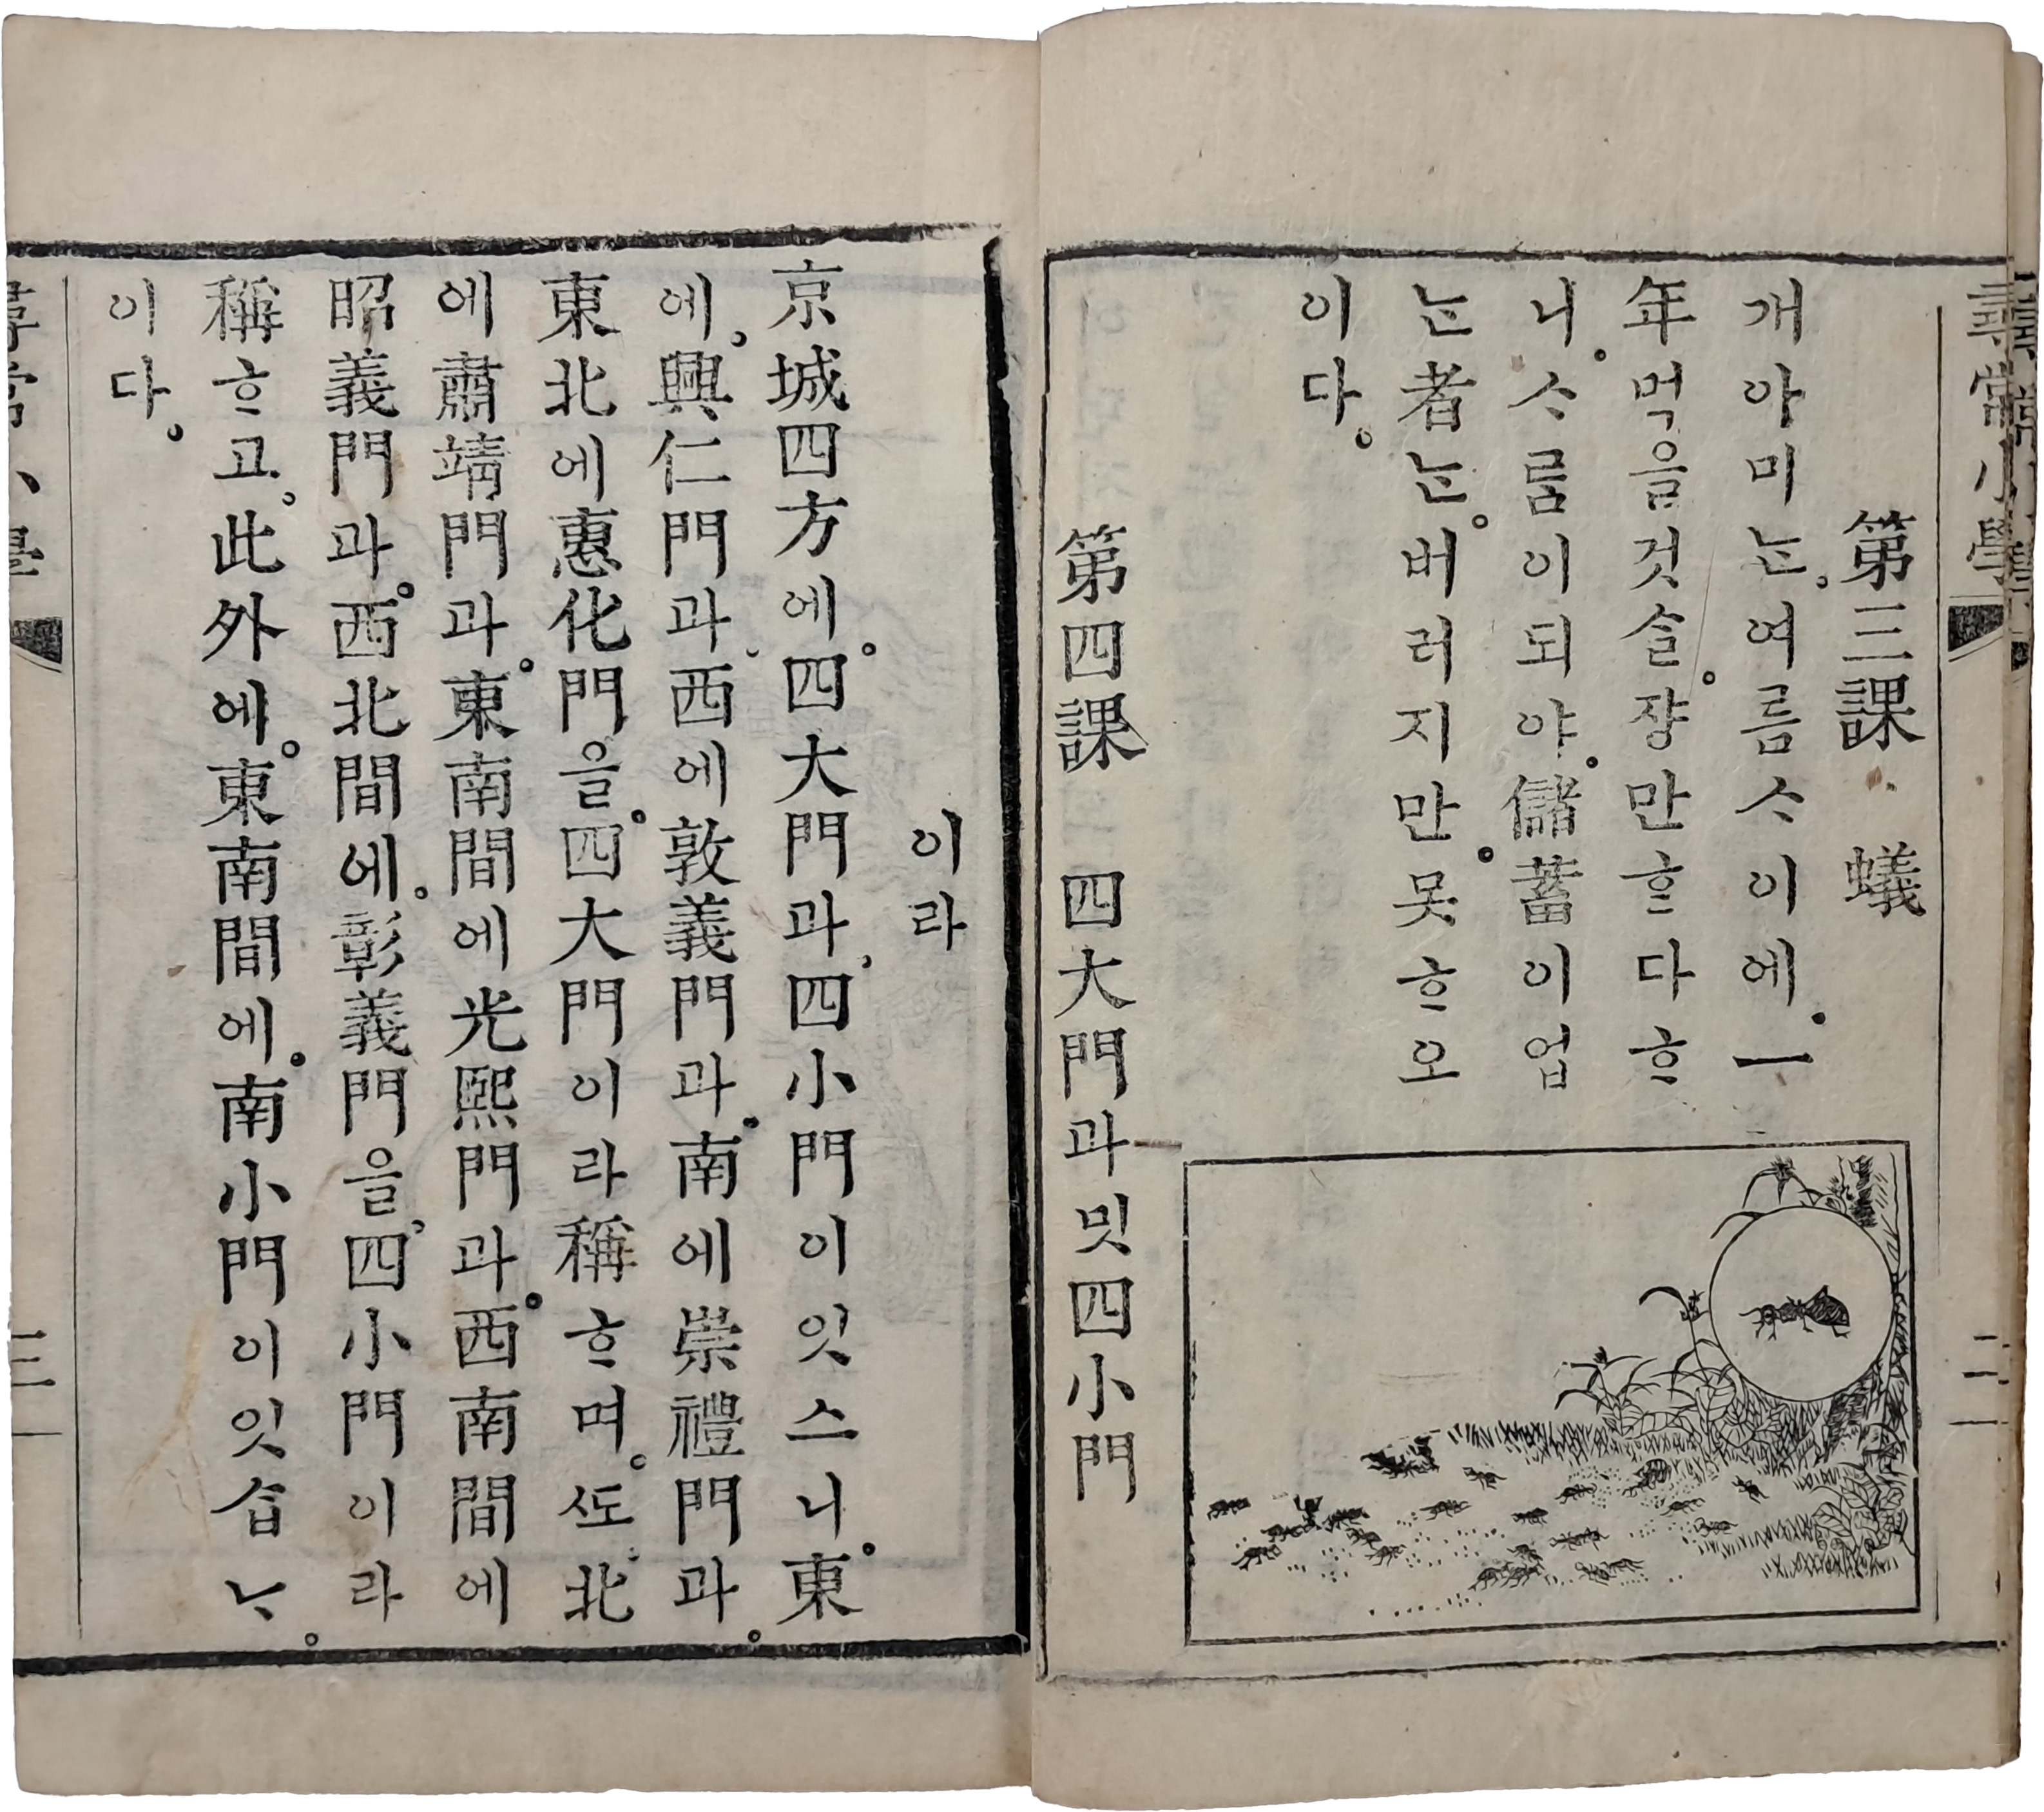 尋常小學
二
第三課 蟻
개야미ᄂᆞᆫ、여름ᄉᆞ이에。一
年먹을것슬。쟝만ᄒᆞᆫ다ᄒᆞ
니。ᄉᆞᄅᆞᆷ이되야。儲蓄이업
ᄂᆞᆫ者ᄂᆞᆫ。버러지만。못ᄒᆞ오
이다。
第四課 四大門과밋四小門
이라
京城四方에。四大門과、四小門이잇스니。東
에、興仁門과、西에敦義門과。南에崇禮門과。
東北에惠化門을。四大門이라稱ᄒᆞ며。ᄯᅩ北
에肅靖門과。東南間에光熙門과。西南間에
昭義門과。西北間에。彰義門을、四小門이라
稱ᄒᆞ고。此外에。東南間에。南小門이잇ᄉᆞᆸᄂᆞ。
이다。
三